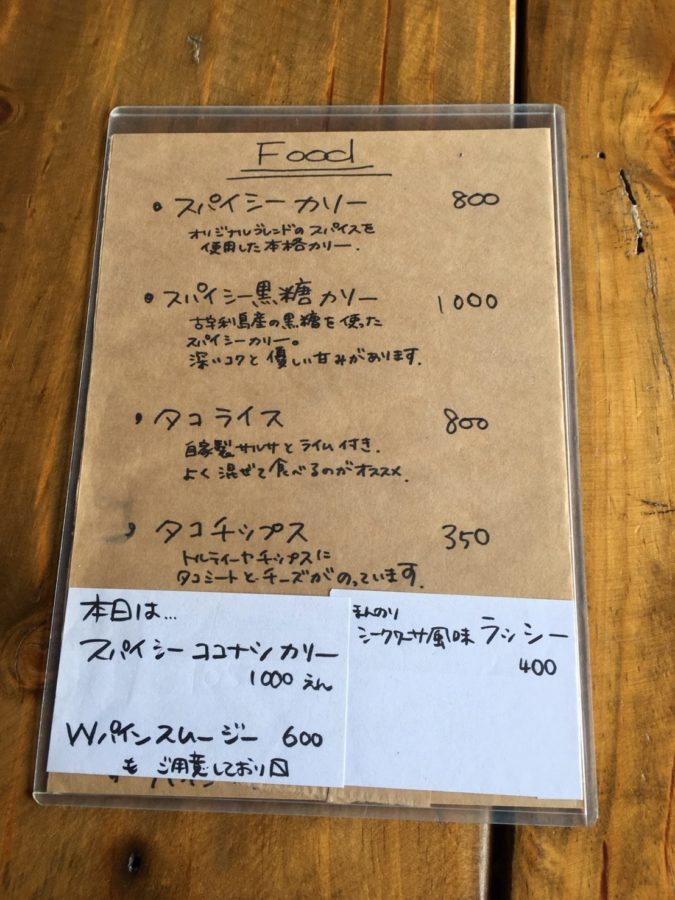 Food
・スパイシーカリー 800
オリジナルブレンドのスパイスを
使用した本格カリー.
・スパイシー黒糖カリー 1000
古宇利島産の黒糖を使った
スパイシーカリー。
深いコクと優しい甘みがあります.
・タコライス 800
自家製サルサとライム付き.
よく混ぜて食べるのがオススメ.
・タコチップス 350
トルティーヤチップスに
タコミートとチーズがのっています.
本日は…
スパイシーココナツカリー
1000えん
Wパインスムージー 600
も ご用意しており〼
まんのり
シークワーサ風味ラッシー
400